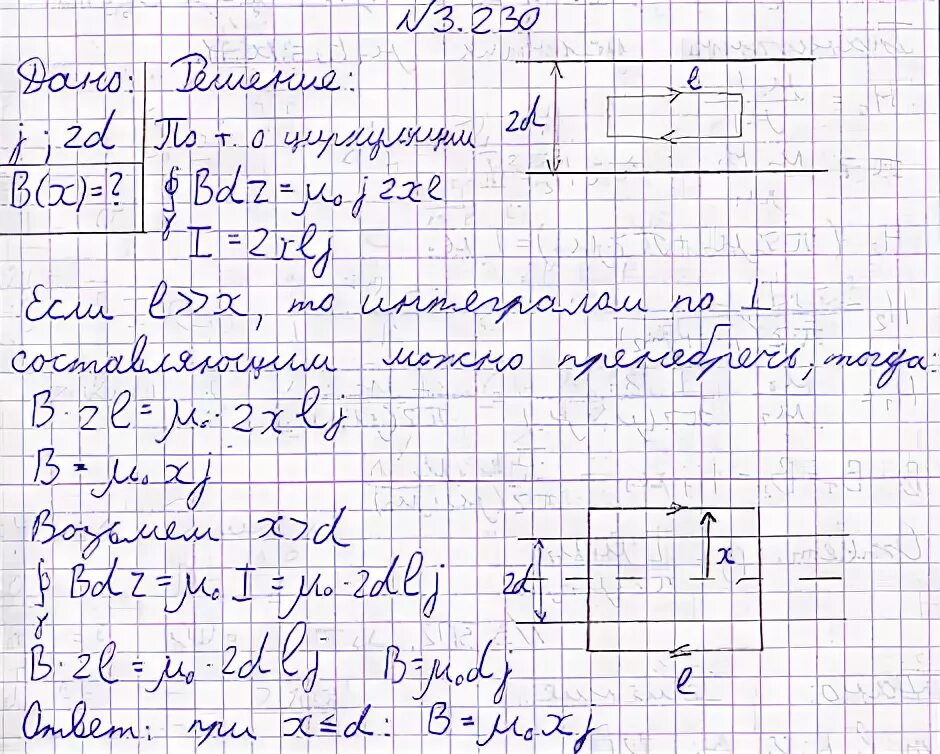 №3.230
Дано: Решение:
j ; 2d По т. о циркуляции
B(x)=? ∮ Bdr = μ₀ j 2xl
γ
I = 2xlj
l
2d
Если l>>x, то интегралом по ⊥
составляющим можно пренебречь, тогда:
B · 2l = μ₀ · 2xlj
B = μ₀ xj
Возьмем x>d
∮ Bdr = μ₀ I = μ₀ · 2dlj
γ
2d x
l
B · 2l = μ₀ · 2dlj B = μ₀dj
Ответ: при x ≤ d: B = μ₀xj